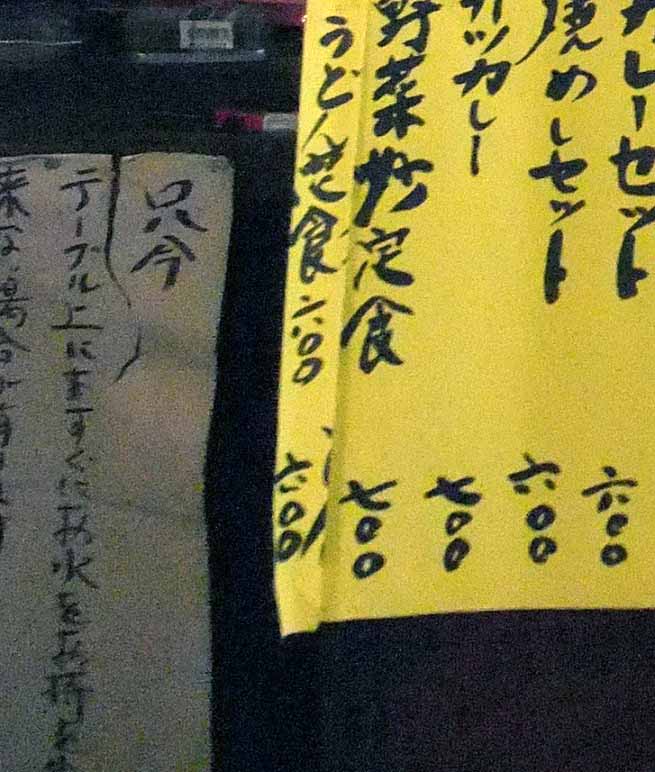 カレーセット 六〇〇
焼めしセット 六〇〇
カツカレー 七〇〇
野菜炒定食 七〇〇
うどん定食 六〇〇
六〇〇
只今
テーブル上にますぐにお水をお持ち